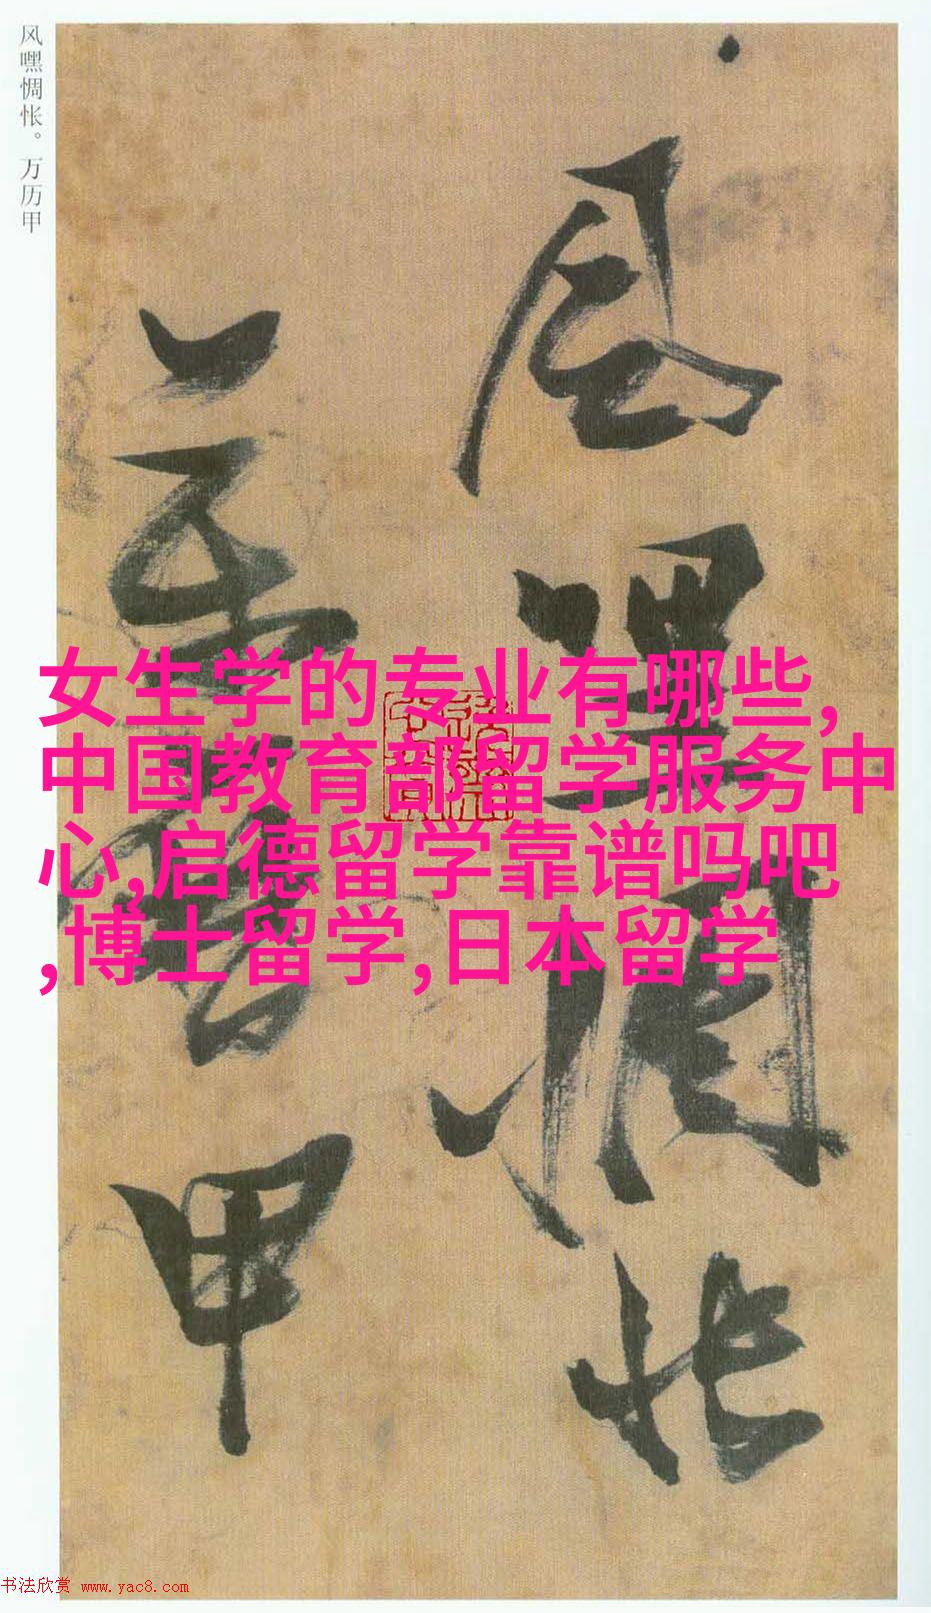 风嘿惆怅。万历甲
风嘿惆怅
万历甲
女生学的专业有哪些,
中国教育部留学服务中
心,启德留学靠谱吗吧
,博士留学,日本留学
书法欣赏 www.yac8.com